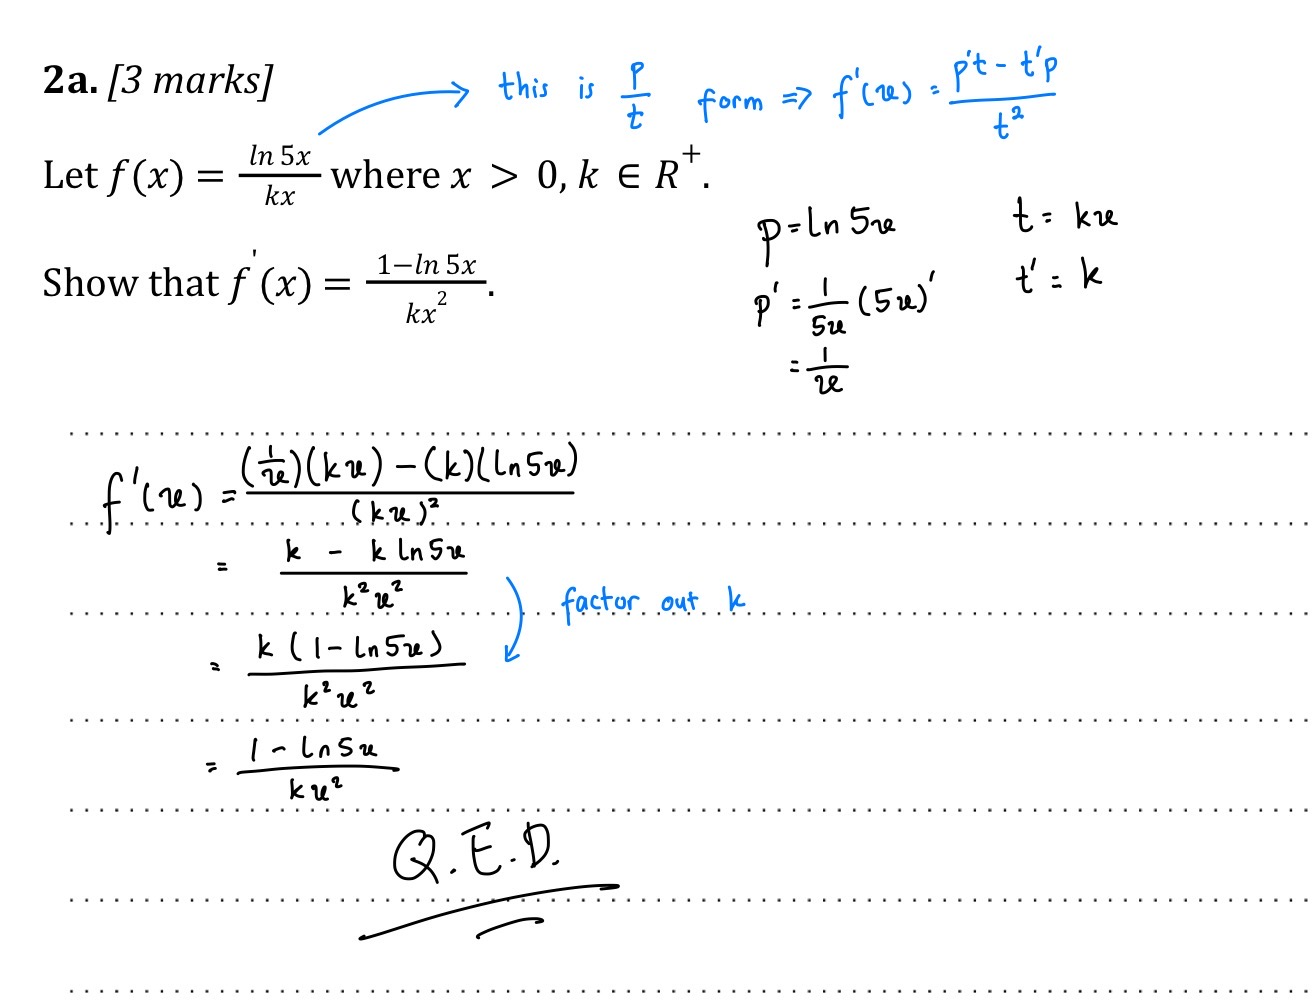 2a. [3 marks]
this is p/t form => f'(x) = (p't - t'p)/t²
Let f(x) = ln 5x/kx where x > 0, k ∈ R⁺.
Show that f'(x) = (1−ln 5x)/kx².
p = ln 5x
t = kx
p' = 1/5x (5x)'
t' = k
= 1/x
f'(x) = ((1/x)(kx) - (k)(ln 5x))/(kx)²
= (k - k ln 5x)/k²x²
factor out k
= k(1 - ln 5x)/k²x²
= (1 - ln 5x)/kx²
Q.E.D.